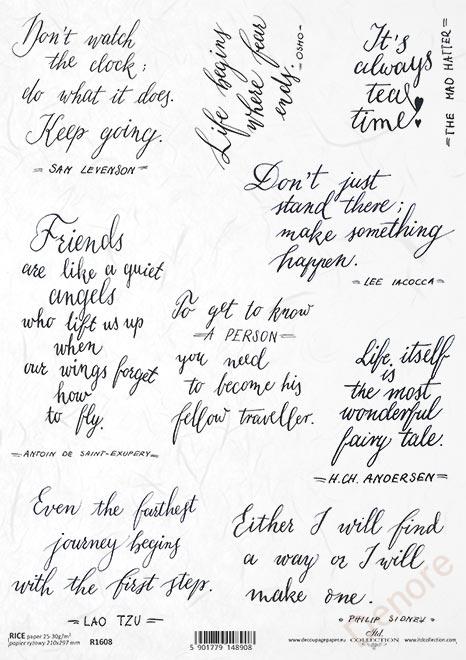 Don't watch
the clock;
do what it does.
Keep going.
= SAM LEVENSON =
Life begins
where fear
ends.
- OSHO -
It's
always
tea
time!
= THE MAD HATTER =
Don't just
stand there;
make something
happen.
= LEE IACOCCA =
Friends
are like a quiet
angels
who lift us up
when
our wings forget
how
to fly.
= ANTOIN DE SAINT-EXUPERY =
To get to know
= A PERSON =
you need
to become his
fellow traveller.
Life itself
is
the most
wonderful
fairy tale.
= H.CH. ANDERSEN =
Even the farthest
journey begins
with the first step.
= LAO TZU =
Either I will find
a way or I will
make one.
• PHILIP SIDNEY •
enore
RICE paper 25-30g/m²
papier ryżowy 210x297 mm
R1608
5 901779 148908
www.decoupagepaper.eu
itd.
COLLECTION
www.itdcollection.com